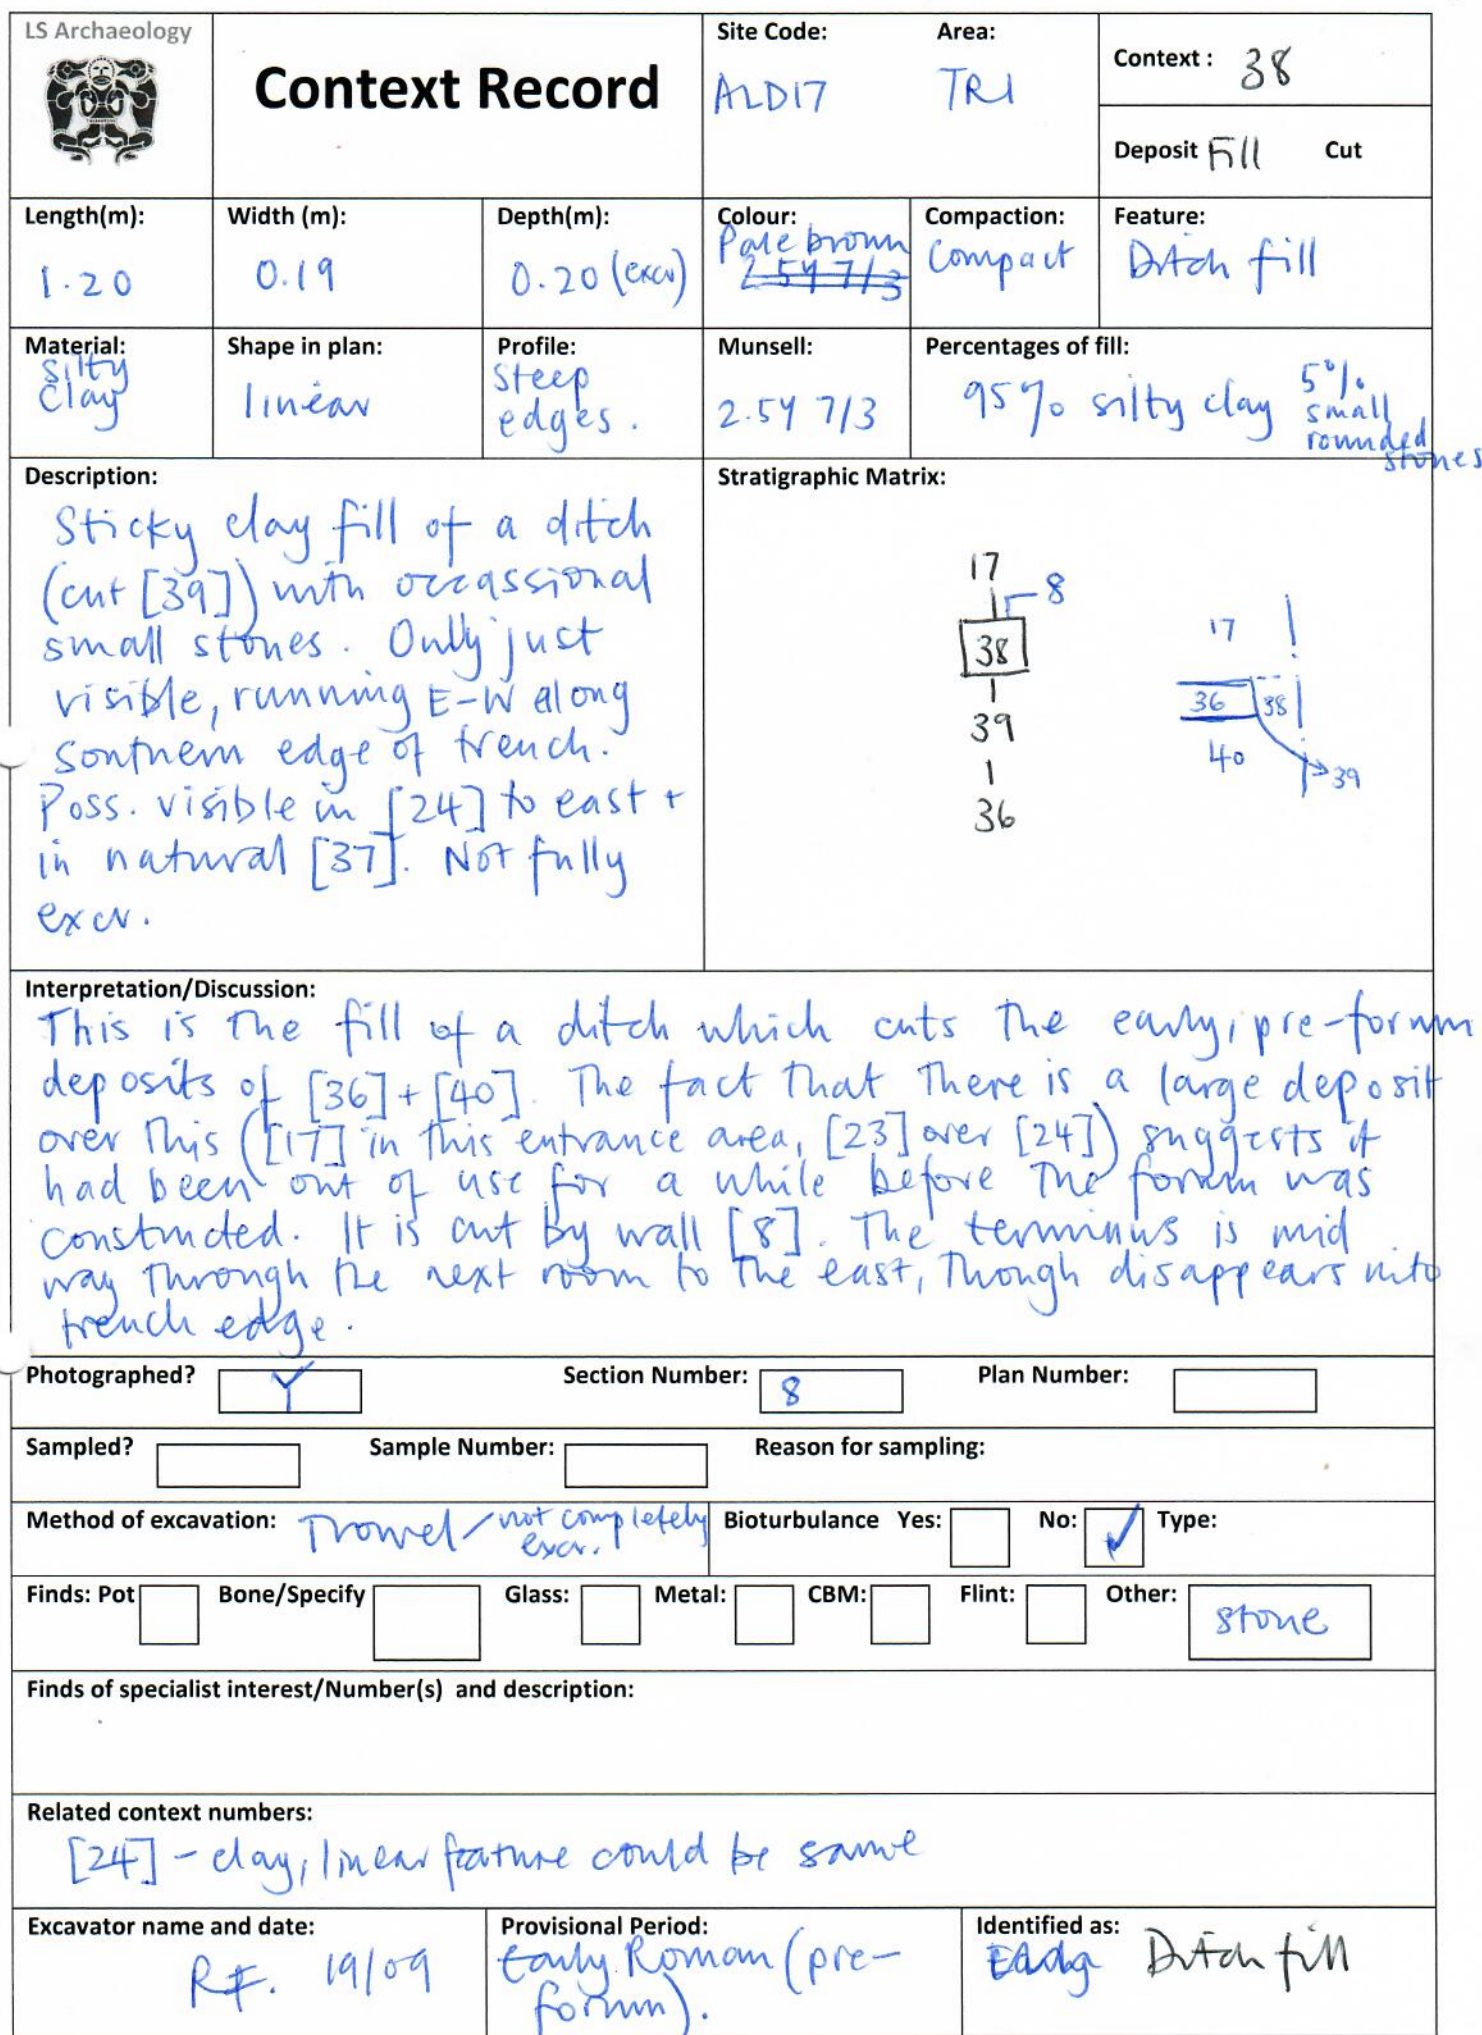 LS Archaeology
Context Record
Site Code: Area:
ALD17 TR1
Context: 38
Deposit Fill Cut
Length(m): Width (m): Depth(m): Colour: Compaction: Feature:
1.20 0.19 0.20 (excv) Pale brown Compact Ditch fill
2.5Y 7/3
Material: Shape in plan: Profile: Munsell: Percentages of fill:
Silty Clay linear Steep edges. 2.5Y 7/3 95% silty clay 5% small rounded stones
Description:
Sticky clay fill of a ditch
(cut [39]) with occassional
small stones. Only just
visible, running E-W along
southern edge of trench.
Poss. visible in [24] to east +
in natural [37]. Not fully
excv.
Stratigraphic Matrix:
17
8
38
39
36
17
36 38
40
39
Interpretation/Discussion:
This is the fill of a ditch which cuts the early, pre-forum
deposits of [36]+[40]. The fact that there is a large deposit
over this ([17] in this entrance area, [23] over [24]) suggests it
had been out of use for a while before the forum was
constructed. It is cut by wall [8]. The terminus is mid
way through the next room to the east, though disappears into
trench edge.
Photographed? Y Section Number: 8 Plan Number:
Sampled? Sample Number: Reason for sampling:
Method of excavation: Trowel / not completely excv. Bioturbulance Yes: No: ✓ Type:
Finds: Pot Bone/Specify Glass: Metal: CBM: Flint: Other: stone
Finds of specialist interest/Number(s) and description:
Related context numbers:
[24] - clay, linear feature could be same
Excavator name and date: Provisional Period: Identified as:
RF. 19/09 Early Roman (pre-
forum). Ditch fill